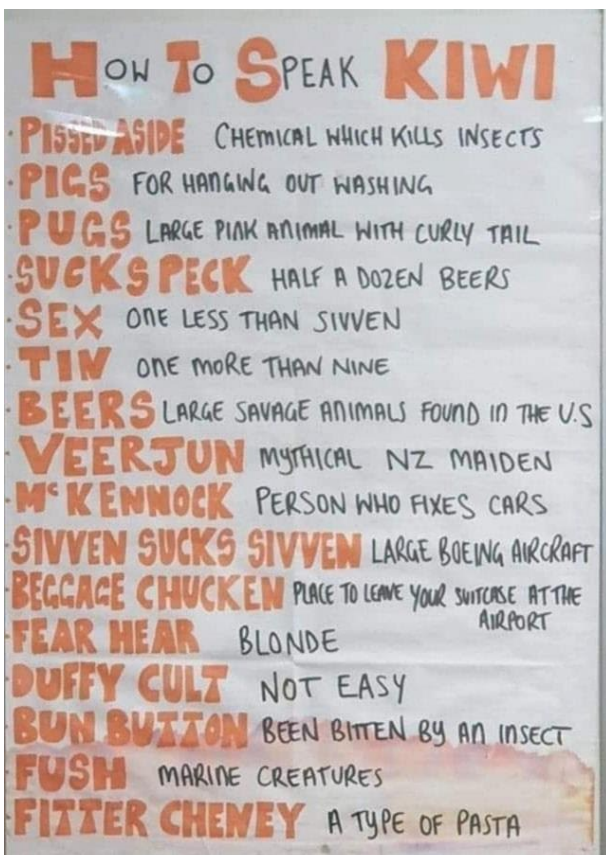 HOW TO SPEAK KIWI
· PISSED ASIDE CHEMICAL WHICH KILLS INSECTS
· PIGS FOR HANGING OUT WASHING
· PUGS LARGE PINK ANIMAL WITH CURLY TAIL
· SUCKS PECK HALF A DOZEN BEERS
· SEX ONE LESS THAN SIVVEN
· TIN ONE MORE THAN NINE
· BEERS LARGE SAVAGE ANIMALS FOUND IN THE U.S
· VEERJUN MYTHICAL NZ MAIDEN
· McKENNOCK PERSON WHO FIXES CARS
· SIVVEN SUCKS SIVVEN LARGE BOEING AIRCRAFT
· BEGGAGE CHUCKEN PLACE TO LEAVE YOUR SUITCASE AT THE
AIRPORT
· FEAR HEAR BLONDE
· DUFFY CULT NOT EASY
· BUN BUTTON BEEN BITTEN BY AN INSECT
· FUSH MARINE CREATURES
· FITTER CHENEY A TYPE OF PASTA